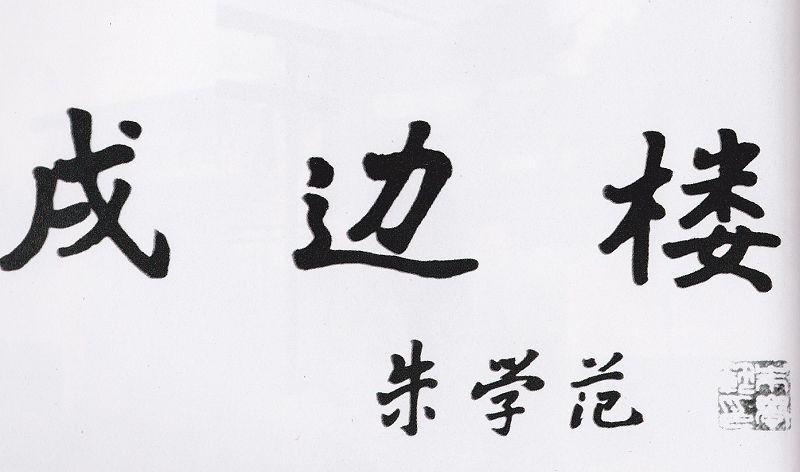 戍边楼
朱学范